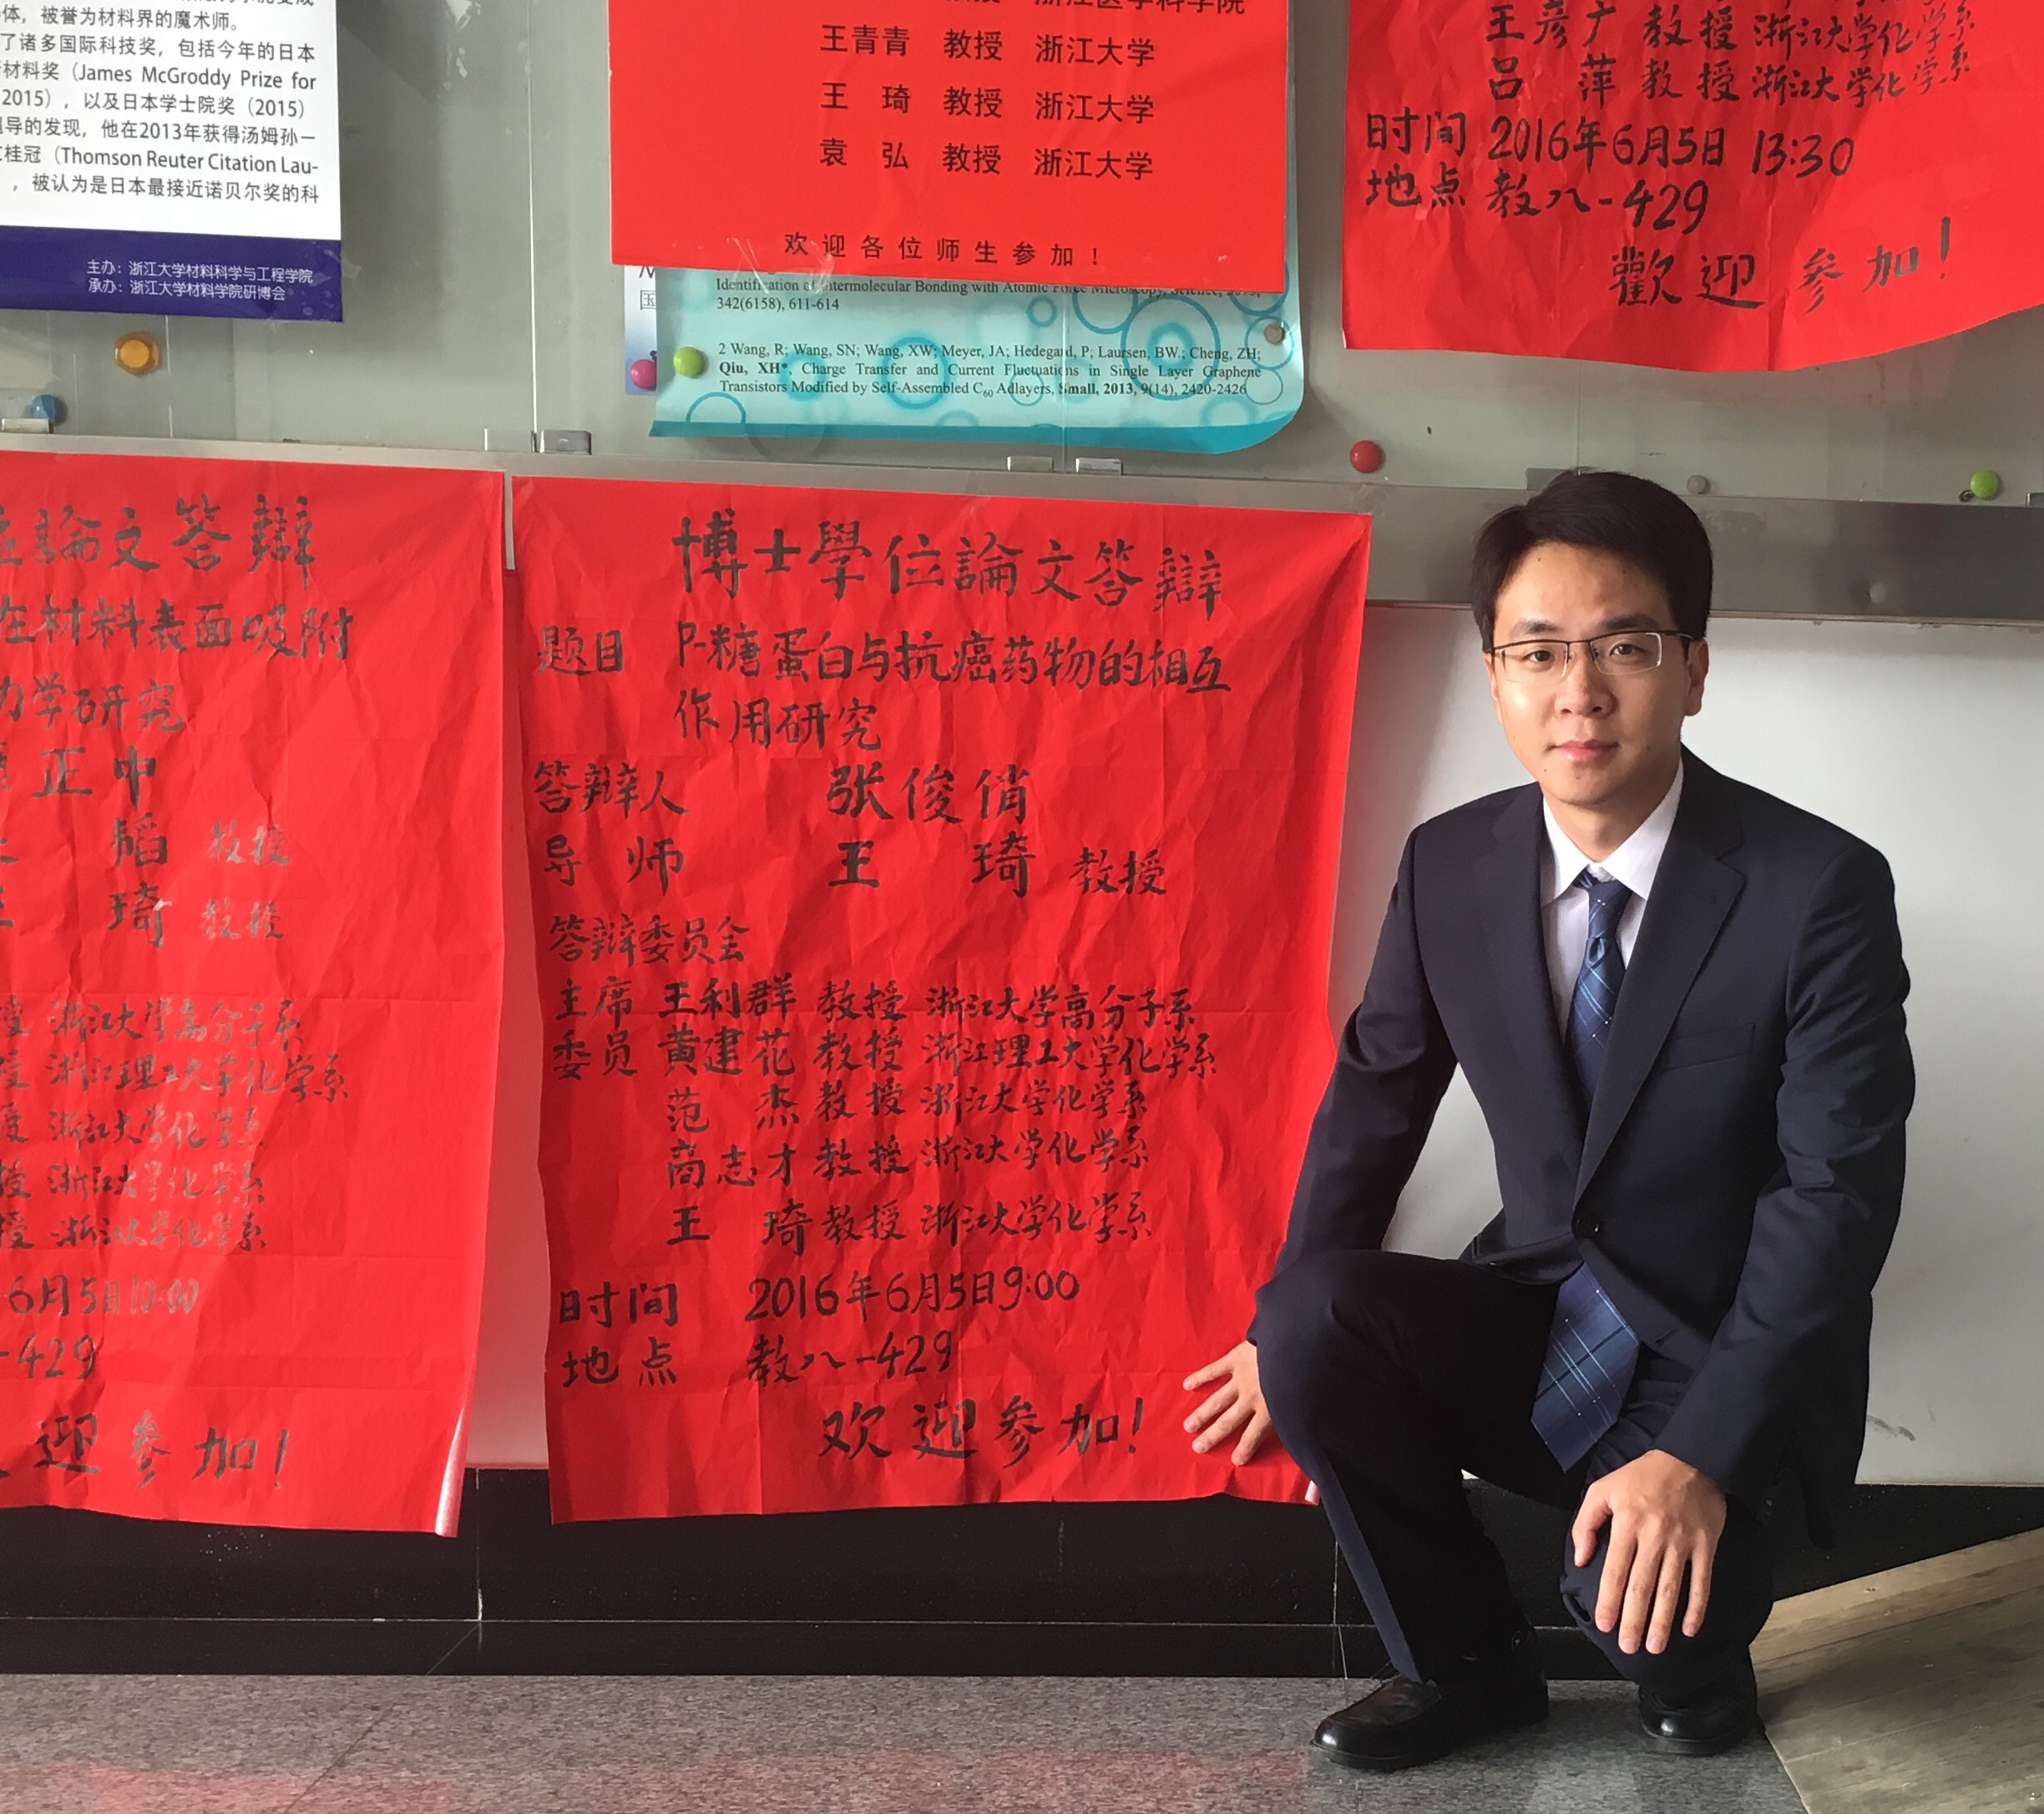 体，被誉为材料界的魔术师。
了诸多国际科技奖，包括今年的日本
材料奖（James McGroddy Prize for
2015），以及日本学士院奖（2015）
导的发现，他在2013年获得汤姆孙一
桂冠（Thomson Reuter Citation Lau-
，被认为是日本最接近诺贝尔奖的科
主办：浙江大学材料科学与工程学院
承办：浙江大学材料学院研博会
浙江医学科学院
王青青 教授 浙江大学
王 琦 教授 浙江大学
袁 弘 教授 浙江大学
欢迎各位师生参加！
Identification of Intermolecular Bonding with Atomic Force Microscopy, Science, 2013,
342(6158), 611-614
2 Wang, R; Wang, SN; Wang, XW; Meyer, JA; Hedegard, P; Laursen, BW.; Cheng, ZH;
Qiu, XH*, Charge Transfer and Current Fluctuations in Single Layer Graphene
Transistors Modified by Self-Assembled C60 Adlayers, Small, 2013, 9(14), 2420-2426
王彦广 教授 浙江大学化学系
吕 萍 教授 浙江大学化学系
时间 2016年6月5日 13:30
地点 教八-429
歡迎参加！
論文答辯
在材料表面吸附
力学研究
正中
韬 教授
琦 教授
授 浙江大学高分子系
授 浙江理工大学化学系
授 浙江大学化学系
授 浙江大学化学系
授 浙江大学化学系
6月5日10:00
-429
迎参加！
博士學位論文答辯
题目 P-糖蛋白与抗癌药物的相互
作用研究
答辩人 张俊俏
导师 王 琦 教授
答辩委员会
主席 王利群 教授 浙江大学高分子系
委员 黄建花 教授 浙江理工大学化学系
范 杰 教授 浙江大学化学系
高志才 教授 浙江大学化学系
王 琦 教授 浙江大学化学系
时间 2016年6月5日9:00
地点 教八-429
欢迎参加！